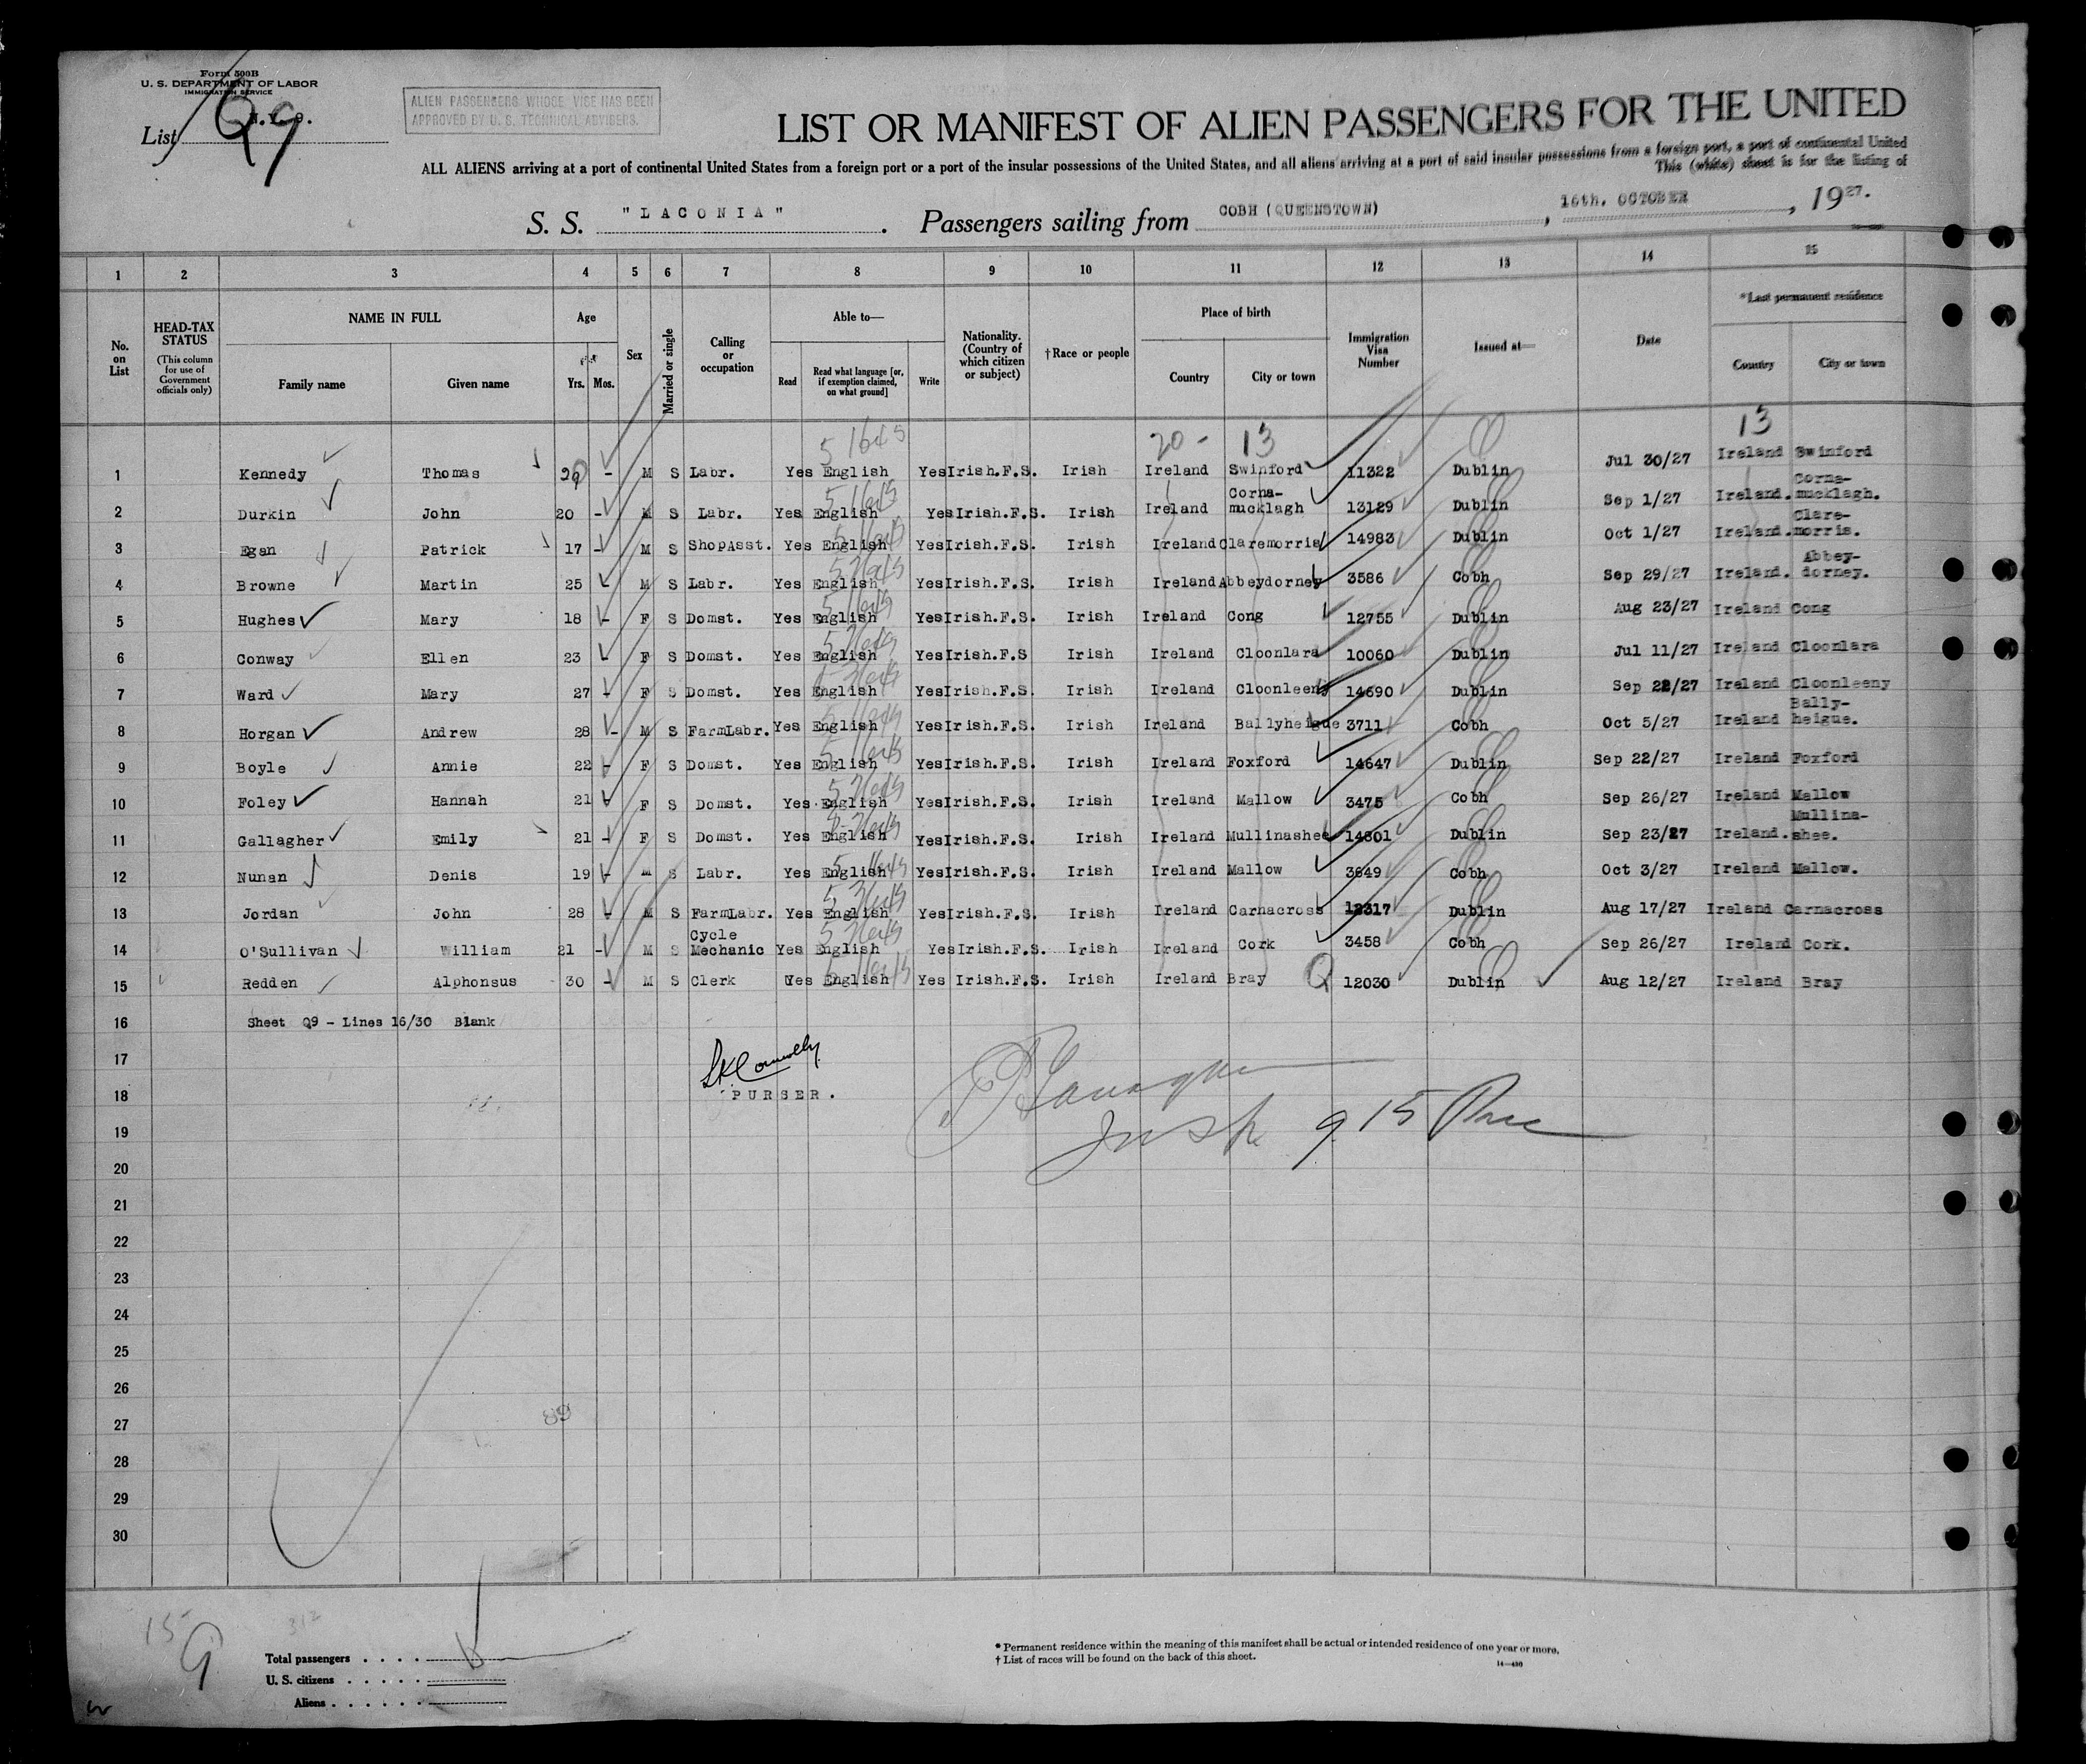 Form 500B
U. S. DEPARTMENT OF LABOR
IMMIGRATION SERVICE
List Q9
ALIEN PASSENGERS WHOSE VISE HAS BEEN
APPROVED BY U. S. TECHNICAL ADVISERS.
LIST OR MANIFEST OF ALIEN PASSENGERS FOR THE UNITED
ALL ALIENS arriving at a port of continental United States from a foreign port or a port of the insular possessions of the United States, and all aliens arriving at a port of said insular possessions from a foreign port, a port of continental United
This (white) sheet is for the listing of
S. S. "LACONIA". Passengers sailing from COBH (QUEENSTOWN), 16th. OCTOBER, 1927.
1 2 3 4 5 6 7 8 9 10 11 12 13 14 15
No. on List
HEAD-TAX STATUS
(This column for use of Government officials only)
NAME IN FULL
Family name Given name
Age
Yrs. Mos.
Sex
Married or single
Calling or occupation
Able to—
Read Read what language [or, if exemption claimed, on what ground] Write
Nationality. (Country of which citizen or subject)
†Race or people
Place of birth
Country City or town
Immigration Visa Number
Issued at—
Date
*Last permanent residence
Country City or town
20 - 13 13
1 Kennedy Thomas 29 - M S Labr. Yes English Yes Irish.F.S. Irish Ireland Swinford 11322 Dublin Jul 30/27 Ireland Swinford
2 Durkin John 20 - M S Labr. Yes English Yes Irish.F.S. Irish Ireland Corna-mucklagh 13129 Dublin Sep 1/27 Ireland. Corna-mucklagh.
3 Egan Patrick 17 - M S ShopAsst. Yes English Yes Irish.F.S. Irish Ireland Claremorris 14983 Dublin Oct 1/27 Ireland. Clare-morris.
4 Browne Martin 25 - M S Labr. Yes English Yes Irish.F.S. Irish Ireland Abbeydorney 3586 Cobh Sep 29/27 Ireland. Abbey-dorney.
5 Hughes Mary 18 - F S Domst. Yes English Yes Irish.F.S. Irish Ireland Cong 12755 Dublin Aug 23/27 Ireland Cong
6 Conway Ellen 23 - F S Domst. Yes English Yes Irish.F.S Irish Ireland Cloonlara 10060 Dublin Jul 11/27 Ireland Cloonlara
7 Ward Mary 27 - F S Domst. Yes English Yes Irish.F.S. Irish Ireland Cloonleeny 14690 Dublin Sep 22/27 Ireland Cloonleeny
8 Horgan Andrew 28 - M S FarmLabr. Yes English Yes Irish.F.S. Irish Ireland Ballyheigue 3711 Cobh Oct 5/27 Ireland Bally-heigue.
9 Boyle Annie 22 - F S Domst. Yes English Yes Irish.F.S. Irish Ireland Foxford 14647 Dublin Sep 22/27 Ireland Foxford
10 Foley Hannah 21 F S Domst. Yes English Yes Irish.F.S. Irish Ireland Mallow 3475 Cobh Sep 26/27 Ireland Mallow
11 Gallagher Emily 21 - F S Domst. Yes English Yes Irish.F.S. Irish Ireland Mullinashee 14801 Dublin Sep 23/27 Ireland. Mullina-shee.
12 Nunan Denis 19 - m S Labr. Yes English Yes Irish.F.S. Irish Ireland Mallow 3649 Cobh Oct 3/27 Ireland Mallow.
13 Jordan John 28 - M S FarmLabr. Yes English Yes Irish.F.S. Irish Ireland Carnacross 12317 Dublin Aug 17/27 Ireland Carnacross
14 O'Sullivan William 21 - M S Cycle Mechanic Yes English Yes Irish.F.S. Irish Ireland Cork 3458 Cobh Sep 26/27 Ireland Cork.
15 Redden Alphonsus 30 - M S Clerk Yes English Yes Irish.F.S. Irish Ireland Bray 12030 Dublin Aug 12/27 Ireland Bray
16 Sheet Q9 - Lines 16/30 Blank
17
18 PURSER.
19
20
21
22
23
24
25
26
27
28
29
30
89
15
9
312
Total passengers
U. S. citizens
Aliens
* Permanent residence within the meaning of this manifest shall be actual or intended residence of one year or more.
† List of races will be found on the back of this sheet.
14—430